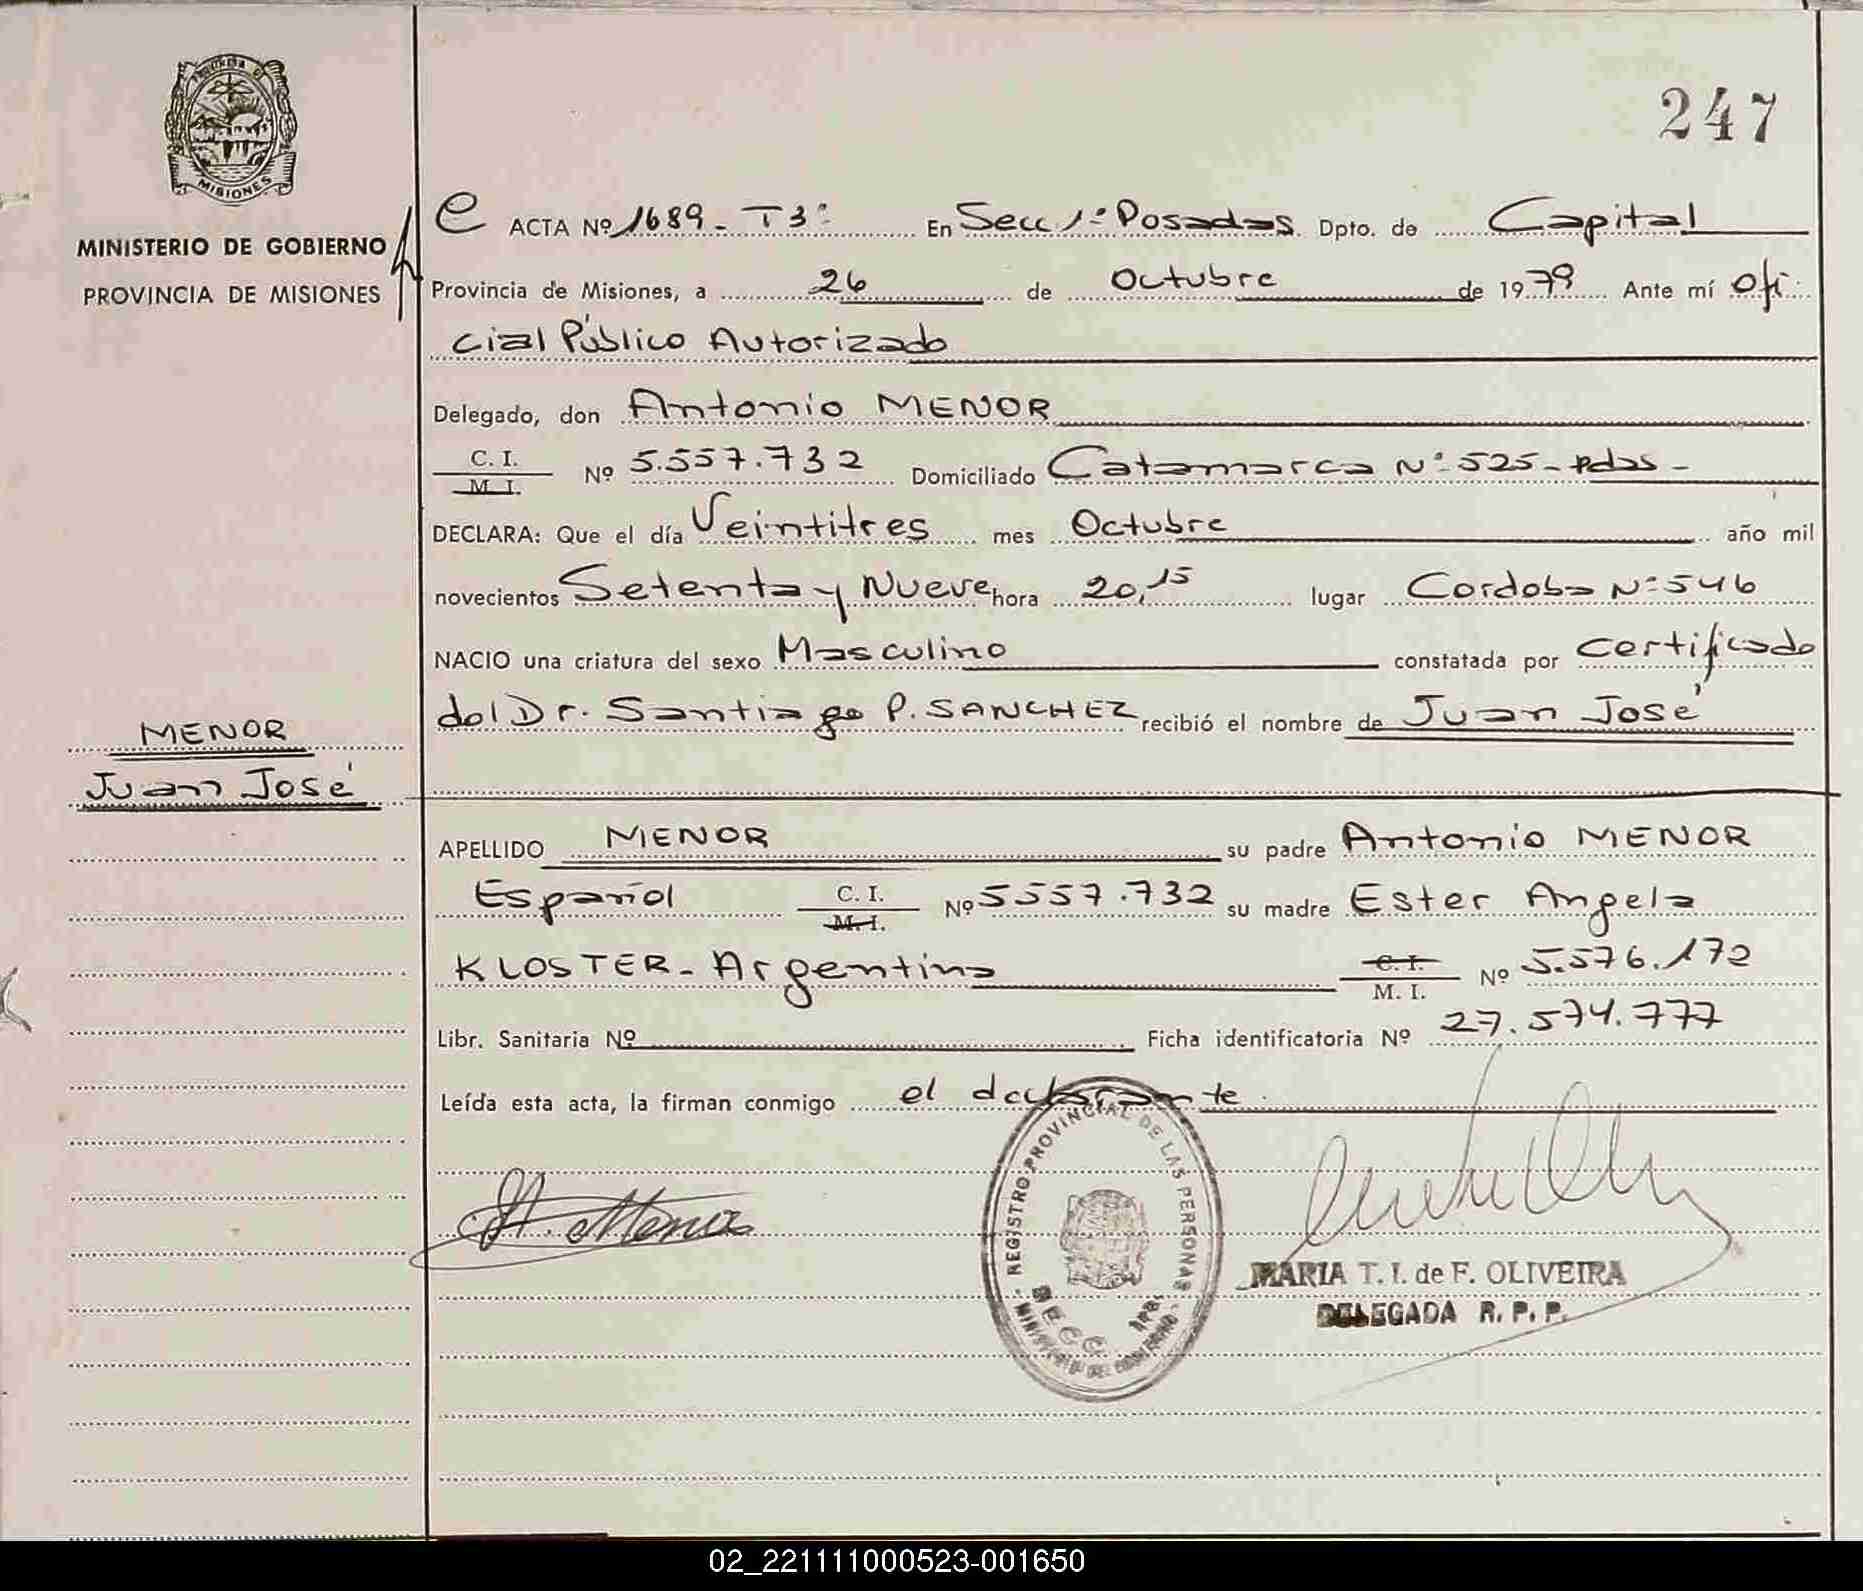 247
PROVINCIA DE
MISIONES
MINISTERIO DE GOBIERNO
PROVINCIA DE MISIONES
e ACTA Nº 1689 - T3º En Secc 1ª Posadas Dpto. de Capital
Provincia de Misiones, a 26 de Octubre de 1979 Ante mí Ofi
cial Público Autorizado
Delegado, don Antonio MENOR
C. I.
M. I.
Nº 5.557.732 Domiciliado Catamarca Nº 525 - Pdas -
DECLARA: Que el día Veintitres mes Octubre año mil
novecientos Setenta y Nueve hora 20,15 lugar Cordoba Nº 546
NACIO una criatura del sexo Masculino constatada por Certificado
del Dr. Santiago P. SANCHEZ recibió el nombre de Juan José
MENOR
Juan José
APELLIDO MENOR su padre Antonio MENOR
Español C. I.
M. I.
Nº 5557.732 su madre Ester Angela
KLOSTER - Argentina C. I.
M. I.
Nº 5.576.172
Libr. Sanitaria Nº Ficha identificatoria Nº 27.574.777
Leída esta acta, la firman conmigo el declarante.
A. Menor
REGISTRO PROVINCIAL DE LAS PERSONAS
SECC. 1RA.
MINISTERIO DE GOBIERNO
MARIA T. I. de F. OLIVEIRA
DELEGADA R. P. P.
02_221111000523-001650